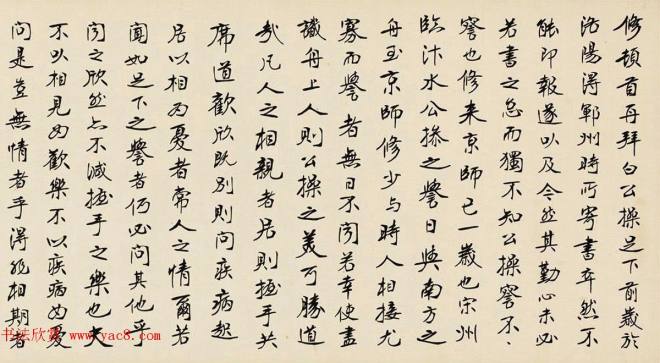 修頓首再拜白公操足下前歲於
洛陽得鄆州時所寄書卒然不
能即報遂以及今然其勤心未必
若書之怠而獨不知公操察不
察也修来京師已一歲也宋州
臨汴水公操之譽日與南方之
舟至京師修少与時人相接尤
寡而譽者無日不聞若幸使盡
識舟上人則公操之美可勝道
哉凡人之相親者居則握手共
席道歡欣既別則問疾病起
居以相為憂者常人之情爾若
聞如足下之譽者何必問其他乎
聞之欣然亦不減握手之樂也夫
不以相見為歡樂不以疾病為憂
問是豈無情者乎得非相期者
书法欣赏 www.yac8.com